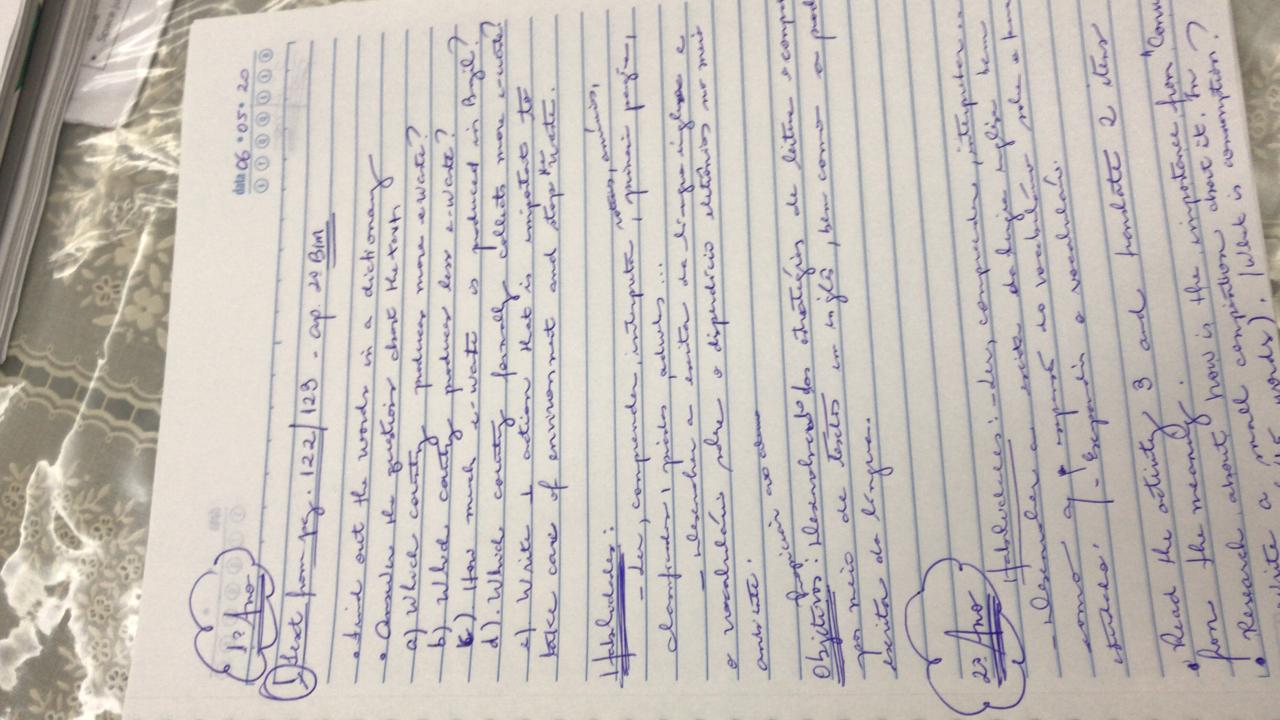 data 06 • 05 • 20
1º Ano
1 Text from pg. 122/123 - ap. 2º Bim
• Find out the words in a dictionary
• Answer the questions about the text.
a) Which country produces more e-waste?
b) Which country produces less e-waste?
c) How much e-waste is produced in Brazil?
d). Which country formally collects more e-waste?
e) Write 1 action that is important to
take care of environment and stop the waste.
Habilidades:
- Ler, compreender, interpretar, anúncios,
classificados, piadas, adverbs...
- desenvolver a escrita da língua inglesa e
o vocabulário sobre o dispendício eletrônicos no meio
ambiente.
Objetivos: Propiciar desenvolver das estratégias de leitura e comp
por meio de textos em inglês, bem como a prod
escrita da língua.
2º Ano Habilidades: - Ler, compreender, interpretar
- Desenvolver a escrita da língua inglesa bem
como vocabulário sobre o
- Expandir o vocabulário.
• Read the activity 3 and translate 2 items
from the meanly.
• Research about how is the importance from "Cons
write a small composition about it. In
(15 words). (What is consumption?